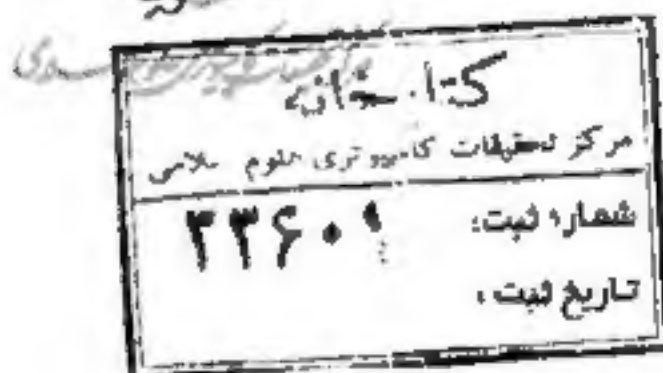 کتابخانه
مرکز تحقیقات کامپیوتری علوم اسلامی
شماره ثبت: ۳۳۶۰۱
تاریخ ثبت: